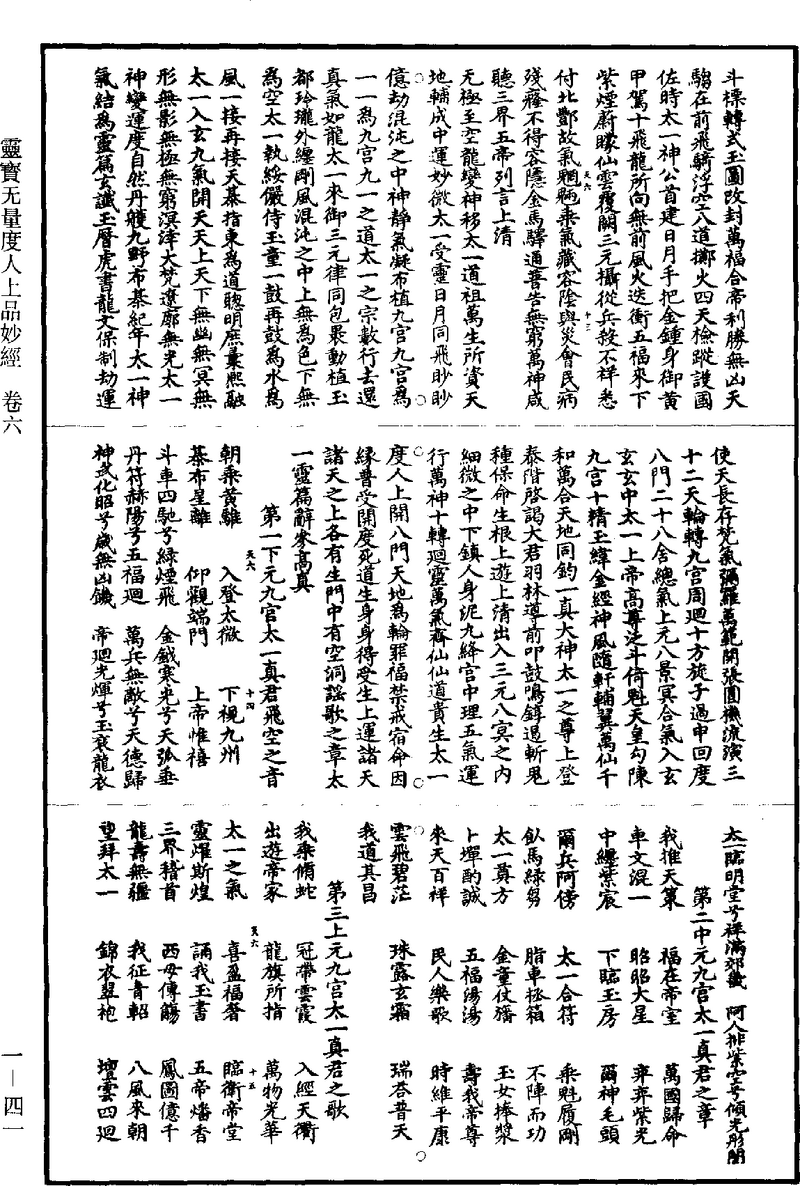 靈寶无量度人上品妙經　卷六
一—四一
斗標轉式玉圖改封萬福合帝利勝無凶天
騶在前飛騎浮空八道擲火四天檢蹤護國
佐時太一神公首建日月手把金鍾身御黃
甲駕十飛龍所向無前風火迭衝五福來下
紫煙蔚曚仙雲覆闕三元攝從兵殺不祥悉
付北酆故氣魍魎乘氣藏容陰與災會民病
殘癃不得容隱金馬驛通普告無窮萬神咸
聽三界五帝列言上清
无極至空龍變神移太一道祖萬生所資天
地輔成中運妙微太一受靈日月同飛眇眇
億劫混沌之中神靜氣凝布植九宮九宮為
一一為九宮九一之道太一之宗數行去還
真氣如龍太一來御三元律同包畏動植玉
都玲瓏外纏剛風混沌之中上無為色下無
為空太一執綏儼侍玉童一鼓再鼓為水為
風一接再接天暮指東為道聰明庶彙熙融
太一入玄九氣開天天上天下無幽無冥無
形無影無極無窮溟涬大梵遼廓無光太一
神變運度自然丹䕶九野布綦紀年太一神
氣結為靈篇玄讖玉曆虎書龍文保制劫運
使天長存梵氣彌羅萬範開張圓機流演三
十二天輪轉九宮周迴十方旋子過午回度
八門二十八舍總氣上元八景冥合氣入玄
玄玄中太一上帝高尊泛斗倚魁天皇勾陳
九宮十精玉緯金經神風隨軒輔翼萬仙千
和萬合天地同鈞一真大神太一之尊上登
泰階啓謁大君羽林導前叩鼓鳴錞遏斬鬼
種保命生根上遊上清出入三元八冥之內
細微之中下鎮人身泥九絳宮中理五氣運
行萬神十轉迴靈萬氣齊仙仙道貴生太一
度人上開八門天地為輪罪福禁戒宿命因
緣普受開度死道生身身得受生上運諸天
諸天之上各有生門中有空洞謠歌之章太
一靈篇辭參高真
第一下元九宮太一真君飛空之音
朝乘黃騅　入登太微　下視九州
綦布星離　仰觀端門　上帝惟禧
斗車四馳兮綠煙飛　金鉞寒光兮天弧垂
丹符赫陽兮五福迴　萬兵無敵兮天德歸
神武化昭兮歲無凶饑　帝迴光煇兮玉衮龍衣
太一臨明堂兮祥滿郊畿　阿人排紫空兮傾光彤闈
第二中元九宮太一真君之章
我推天策　福在帝室　萬國歸命
車文混一　昭昭大星　弈弈紫光
中纏紫宸　下臨玉房　爾神毛頭
爾兵阿傍　太一合符　乘魁履剛
飤馬綠芻　脂車柽箱　不陣而功
太一奠方　金童仗𣂏　玉女捧漿
卜墠酌誠　五福湯湯　壽我帝尊
來天百祥　民人樂歌　時維平康
雲飛碧茫　珠露玄霜　瑞荅普天
我道其昌
第三上元九宮太一真君之歌
我乘脩蛇　冠帶雲霞　入經天衢
出遊帝家　龍旗所指　萬物光華
太一之氣　喜盈福奢　臨衛帝堂
靈燿斯煌　誦我玉書　五帝燔香
三界稽首　西母傳觴　鳳圖億千
龍壽無疆　我征青軺　八風來朝
望拜太一　錦衣翠袍　壇雲四迴
天六　十三
天六　十四
天六　十五